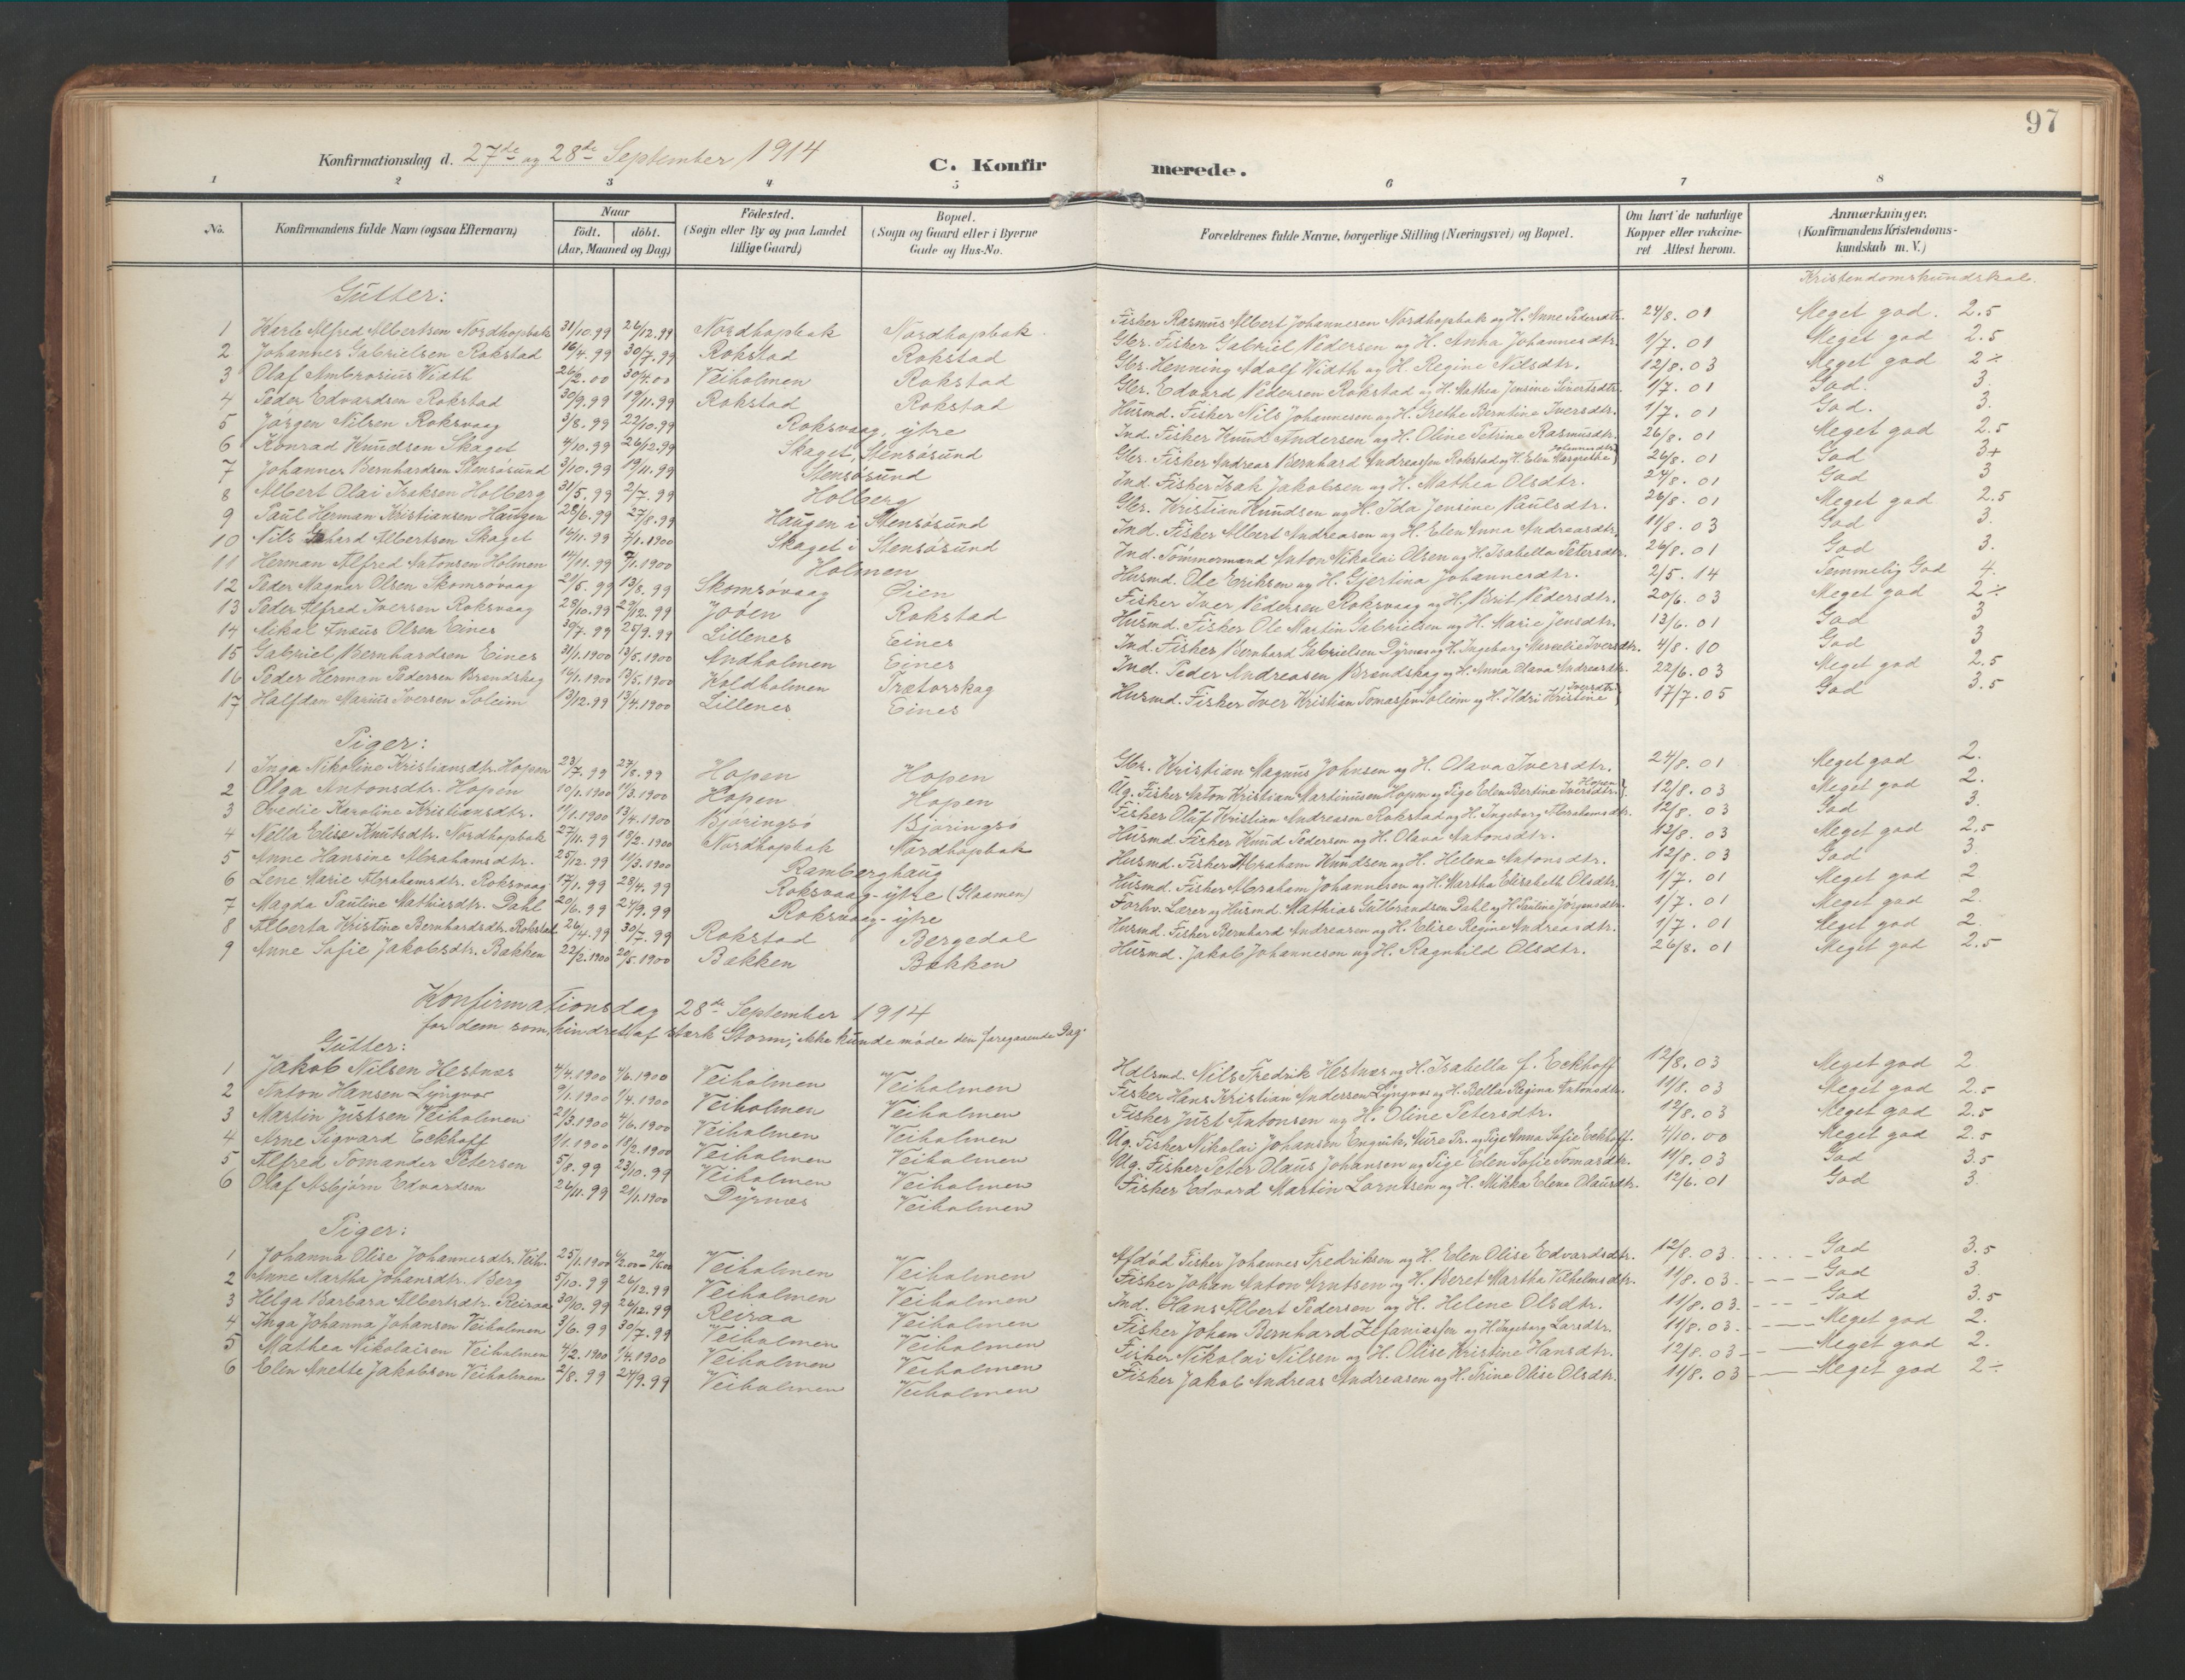 97
Konfirmationsdag d. 27de og 28de September 1914
C. Konfirmerede.
1 2 3 4 5 6 7 8
No. | Konfirmandens fulde Navn (ogsaa Efternavn) | Naar födt. döbt. (Aar, Maaned og Dag) | Födested. (Sogn eller By og paa Landet tillige Gaard) | Bopæl. (Sogn og Gaard eller i Byerne Gade og Hus-No. | Forældrenes fulde Navne, borgerlige Stilling (Næringsvei) og Bopæl. | Om havt de naturlige Kopper eller vakcineret Attest herom. | Anmærkninger. (Konfirmandens Kristendomskundskab m. V.)
Kristendomskundskab.
Gutter:
1 Karle Alfred Albertsen Nordhopbak 31/10.99 26/12.99 Nordhopbak Nordhopbak Fisker Rasmus Albert Johannesen Nordhopbak og H. Anne Pedersdtr. 24/8.01 Meget god. 2.5
2 Johannes Gabrielsen Rokstad 16/4.99 30/7.99 Rokstad Rokstad Gbr. Fisker Gabriel Pedersen og H. Anna Johannesdtr. 1/7.01 Meget god 2.5
3 Olaf Ambrosius Width 26/2.00 30/4.00 Veiholmen Rokstad Gbr. Henning Adolf Width og H. Regine Nilsdtr. 12/8.03 Meget god 2÷
4 Peder Edvardsen Rokstad 30/9.99 19/11.99 Rokstad Rokstad Gbr. Edvard Pedersen Rokstad og H. Mathea Jensine Sivertsdtr. 1/7.01 God. 3.
5 Jørgen Nilsen Roksvaag 3/8.99 22/10.99 Roksvaag, ytre Husmd. Fisker Nils Johannesen og H. Grethe Berntine Iversdtr. 1/7.01 God. 3.
6 Konrad Knudsen Skaget 4/10.99 26/12.99 Skaget, Stensøsund Ind. Fisker Knud Andersen og H. Oline Petrine Rasmusdtr. 26/8.01 Meget god 2.5
7 Johannes Bernhardsen Stensøsund 3/10.99 19/11.99 Stensøsund Gbr. Fisker Andreas Bernhard Andreassen Rokstad og H. Elen Margrethe Johannesdtr. 26/8.01 God 3+
8 Albert Olai Isaksen Holberg 31/5.99 2/7.99 Holberg Ind. Fisker Isak Jakobsen og H. Mathea Olsdtr. 24/8.01 God 3
9 Paul Herman Kristiansen Haugen 28/6.99 27/8.99 Haugen i Stensøsund Gbr. Kristian Knudsen og H. Ida Jensine Paulsdtr. 26/8.01 Meget god 2.5
10 Nils Albertsen Skaget 16/11.99 7/1.1900 Skaget i Stensøsund Ind. Fisker Albert Andreasen og H. Elen Anna Andreasdtr. 11/8.03 God 3.
11 Herman Alfred Antonsen Holmen 14/11.99 7/1.1900 Holmen Ind. Tømmermand Anton Nikolai Olsen og H. Isabella Petersdtr. 26/8.01 God 3.
12 Peder Magnar Olsen Skomsøvaag 21/5.99 13/8.99 Skomsøvaag Øien Husmd. Ole Eriksen og H. Gjertina Johannesdtr. 2/5.14 Temmelig God 4.
13 Peder Alfred Iversen Roksvaag 28/10.99 29/12.99 Joøen Rokstad Fisker Iver Pedersen Roksvaag og H. Brit Pedersdtr. 20/6.03 Meget god 2÷
14 Mikal Olsen Eines 30/7.99 25/9.99 Lillenes Eines Husmd. Fisker Ole Martin Gabrielsen og H. Marie Jensdtr. 13/6.01 God 3
15 Gabriel Bernhardsen Eines 31/1.1900 13/5.1900 Andholmen Eines Ind. Fisker Bernhard Gabrielsen Dyrnes og H. Ingeborg Marselie Iversdtr. 4/8.10 God 3
16 Peder Herman Pedersen Brandskag 16/1.1900 13/5.1900 Koldholmen Trætorskag Ind. Peder Andreasen Brandskag og H. Anna Olava Andreasdtr. 22/6.03 Meget god 2.5
17 Halfdan Marius Iversen Soleim 13/12.99 13/4.1900 Lillenes Eines Husmd. Fisker Iver Kristian Tomassen Soleim og H. Ildri Kristine Iversdtr. 17/7.05 God 3.5
Piger:
1 Inga Nikoline Kristiansdtr. Hopen 23/7.99 27/8.99 Hopen Hopen Gbr. Kristian Magnus Johnsen og H. Olava Iversdtr. 24/8.01 Meget god 2.
2 Olga Antonsdtr. Hopen 10/1.1900 11/3.1900 Hopen Hopen Ug. Fisker Anton Kristian Martinusen Hopen og Pige Elen Bertine Iversdtr. Hopen 12/8.03 Meget god 2.
3 Ovedie Karoline Kristiansdtr. 11/1.1900 13/4.1900 Bjøringsø Bjøringsø Fisker Oluf Kristian Andreasen Rokstad og H. Ingeborg Abrahamsdtr. 12/8.03 God 3.
4 Nella Elise Knutsdtr. Nordhopbak 27/11.99 18/2.1900 Nordhopbak Nordhopbak Husmd. Fisker Knud Pedersen og H. Olava Antonsdtr. 12/8.03 Meget god 2.5
5 Anne Hansine Abrahamsdtr. 25/12.99 11/3.1900 Ramberghaug Husmd. Fisker Abraham Knudsen og H. Helene Antonsdtr. 12/8.03 God 3.
6 Lene Marie Abrahamsdtr. Roksvaag 17/1.99 23/4.99 Roksvaag-ytre (Glaamen) Husmd. Fisker Abraham Johannesen og H. Martha Elisabeth Olsdtr. 1/7.01 Meget god 2
7 Magda Pauline Mathiasdtr. Dahl 20/6.99 24/9.99 Roksvaag-ytre Forhv. Lærer og Husmd. Mathias Gulbrandsen Dahl og H. Pauline Jørgensdtr. 1/7.01 Meget god 2.
8 Alberta Kristine Bernhardsdtr. Rokstad 26/4.99 30/7.99 Rokstad Bergedal Husmd. Fisker Bernhard Andreasen og H. Elise Regine Andreasdtr. 1/7.01 Meget god 2.
9 Anne Sofie Jakobsdtr. Bakken 22/2.1900 20/5.1900 Bakken Bakken Husmd. Jakob Johannesen og H. Ragnhild Olsdtr. 26/8.01 Meget god 2.5
Konfirmationsdag 28de September 1914
for dem som, hindret af stærk Storm, ikke kunde møde den foregaaende Dag.
Gutter:
1 Jakob Nilsen Hestnes 4/4.1900 4/6.1900 Veiholmen Veiholmen Hdlsmd. Nils Fredrik Hestnes og H. Isabella f. Eckhoff 12/8.03 Meget god 2
2 Anton Hansen Lyngvær 9/1.1900 1/4.1900 Veiholmen Veiholmen Fisker Hans Kristian Andersen Lyngvær og H. Bella Regina Antonsdtr. 11/8.03 Meget god 2.5
3 Martin Justsen Veiholmen 21/3.1900 4/6.1900 Veiholmen Veiholmen Fisker Just Antonsen og H. Oline Petersdtr. 12/8.03 Meget god 2.5
4 Arne Sigvard Eckhoff 1/1.1900 18/2.1900 Veiholmen Veiholmen Ug. Fisker Nikolai Johansen Engvik, Aure Pr. og Pige Anna Sofie Eckhoff. 4/10.00 Meget god 2.5
5 Alfred Tomander Petersen 5/8.99 23/10.99 Veiholmen Veiholmen Ug. Fisker Peter Olaus Johansen og Pige Elen Sofie Tomasdtr. 11/8.03 God 3.5
6 Olaf Asbjørn Edvardsen 26/11.99 21/1.1900 Dyrnæs Veiholmen Fisker Edvard Martin Lorntsen og H. Mikka Elena Olausdtr. 12/6.01 God 3.
Piger:
1 Johanna Olise Johannesdtr. Veih. 25/1.1900 Veiholmen Veiholmen Afdød Fisker Johannes Fredriksen og H. Elen Olise Edvardsdtr. 12/8.03 God 3.5
2 Anne Martha Johansdtr. Berg 5/10.99 26/12.99 Veiholmen Veiholmen Fisker Johan Anton Arntsen og H. Beret Martha Vilhelmsdtr. 11/8.03 God 3
3 Helga Barbara Albertsdtr. Reiraa 30/10.99 26/12.99 Reiraa Veiholmen Ind. Hans Albert Pedersen og H. Helene Olsdtr. 11/8.03 God 3.5
4 Inga Johanna Johansen Veiholmen 3/6.99 30/7.99 Veiholmen Veiholmen Fisker Johan Bernhard Zefaniassen og H. Ingeborg Larsdtr. 11/8.03 Meget god 2.
5 Mathea Nikolaisen Veiholmen 4/2.1900 1/4.1900 Veiholmen Veiholmen Fisker Nikolai Nilsen og H. Olise Kristine Hansdtr. 12/8.03 Meget god 2.
6 Elen Anette Jakobsen Veiholmen 2/8.99 24/9.99 Veiholmen Veiholmen Fisker Jakob Andreas Andreasen og H. Trine Olise Olsdtr. 11/8.03 Meget god 2÷